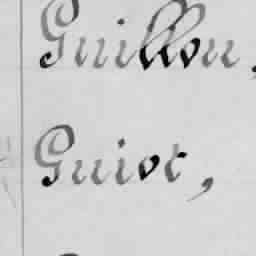 Guillou,
Guiot,